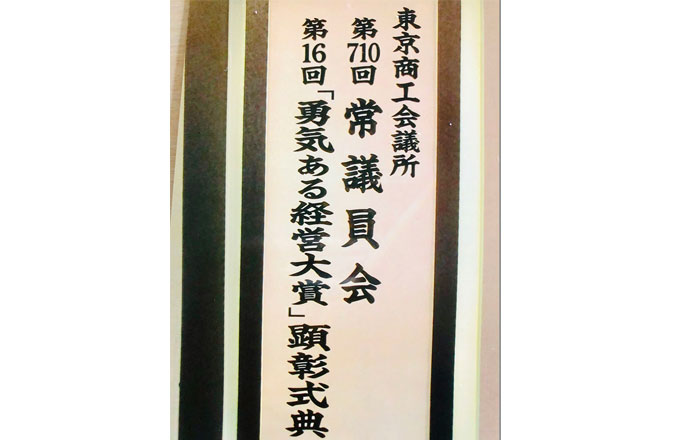 東京商工会議所
第710回 常議員会
第16回「勇気ある経営大賞」顕彰式典